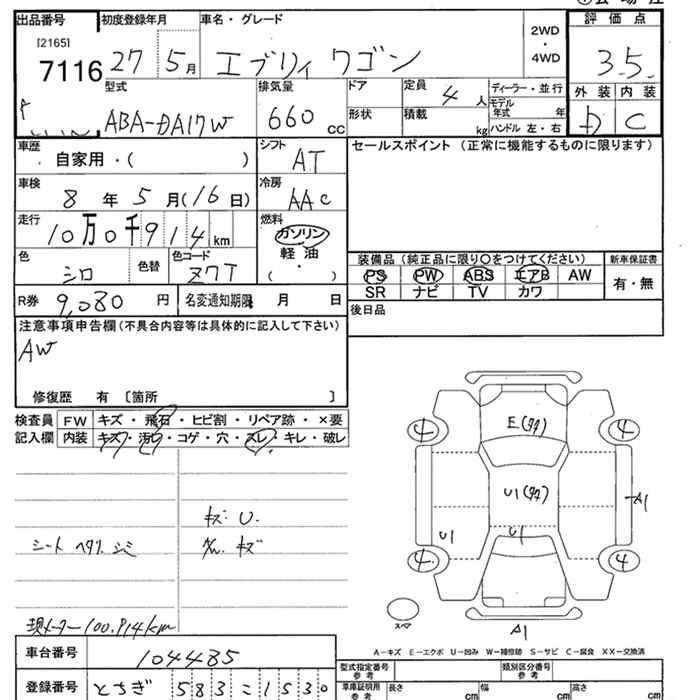 出品番号 初度登録年月 車名・グレード 2WD・4WD 評価点
[2165]
7116 27 5月 エブリィ ワゴン 3.5
型式 排気量 ドア 定員 4人 ディーラー・並行 外装 内装
ABA-DA17W 660cc 形状 積載 kg モデル年式 年 D C
ハンドル 左・右
車歴 自家用・( ) シフト AT セールスポイント (正常に機能するものに限ります)
車検 8年5月(16日) 冷房 AAC
走行 10万0千914km 燃料 ガソリン
軽油
( ・ )
色 シロ 色替 色コード Z7T
装備品 (純正品に限り○をつけてください) 新車保証書
PS PW ABS エアB AW 有・無
SR ナビ TV カワ
R券 9,080円 名変通知期限 月 日
後日品
注意事項申告欄(不具合内容等は具体的に記入して下さい)
AW
修復歴 有 〔箇所 ]
検査員 FW キズ・飛石・ヒビ割・リペア跡・×要
記入欄 内装 キズ・汚レ・コゲ・穴・スレ・キレ・破レ
キズ U.
シート ヘタリ シミ キズ
現メーター100.914km
車台番号 104485
登録番号 とちぎ 583 こ 1530
4 E(タタ) 4
U1(タタ) A1
U1 U1
4 4
スペア
A1
A−キズ E−エクボ U−凹み W−補修跡 S−サビ C−腐食 XX−交換済
型式指定番号 参考 類別区分番号 参考
車庫証明用 参考 長さ cm 幅 cm 高さ cm